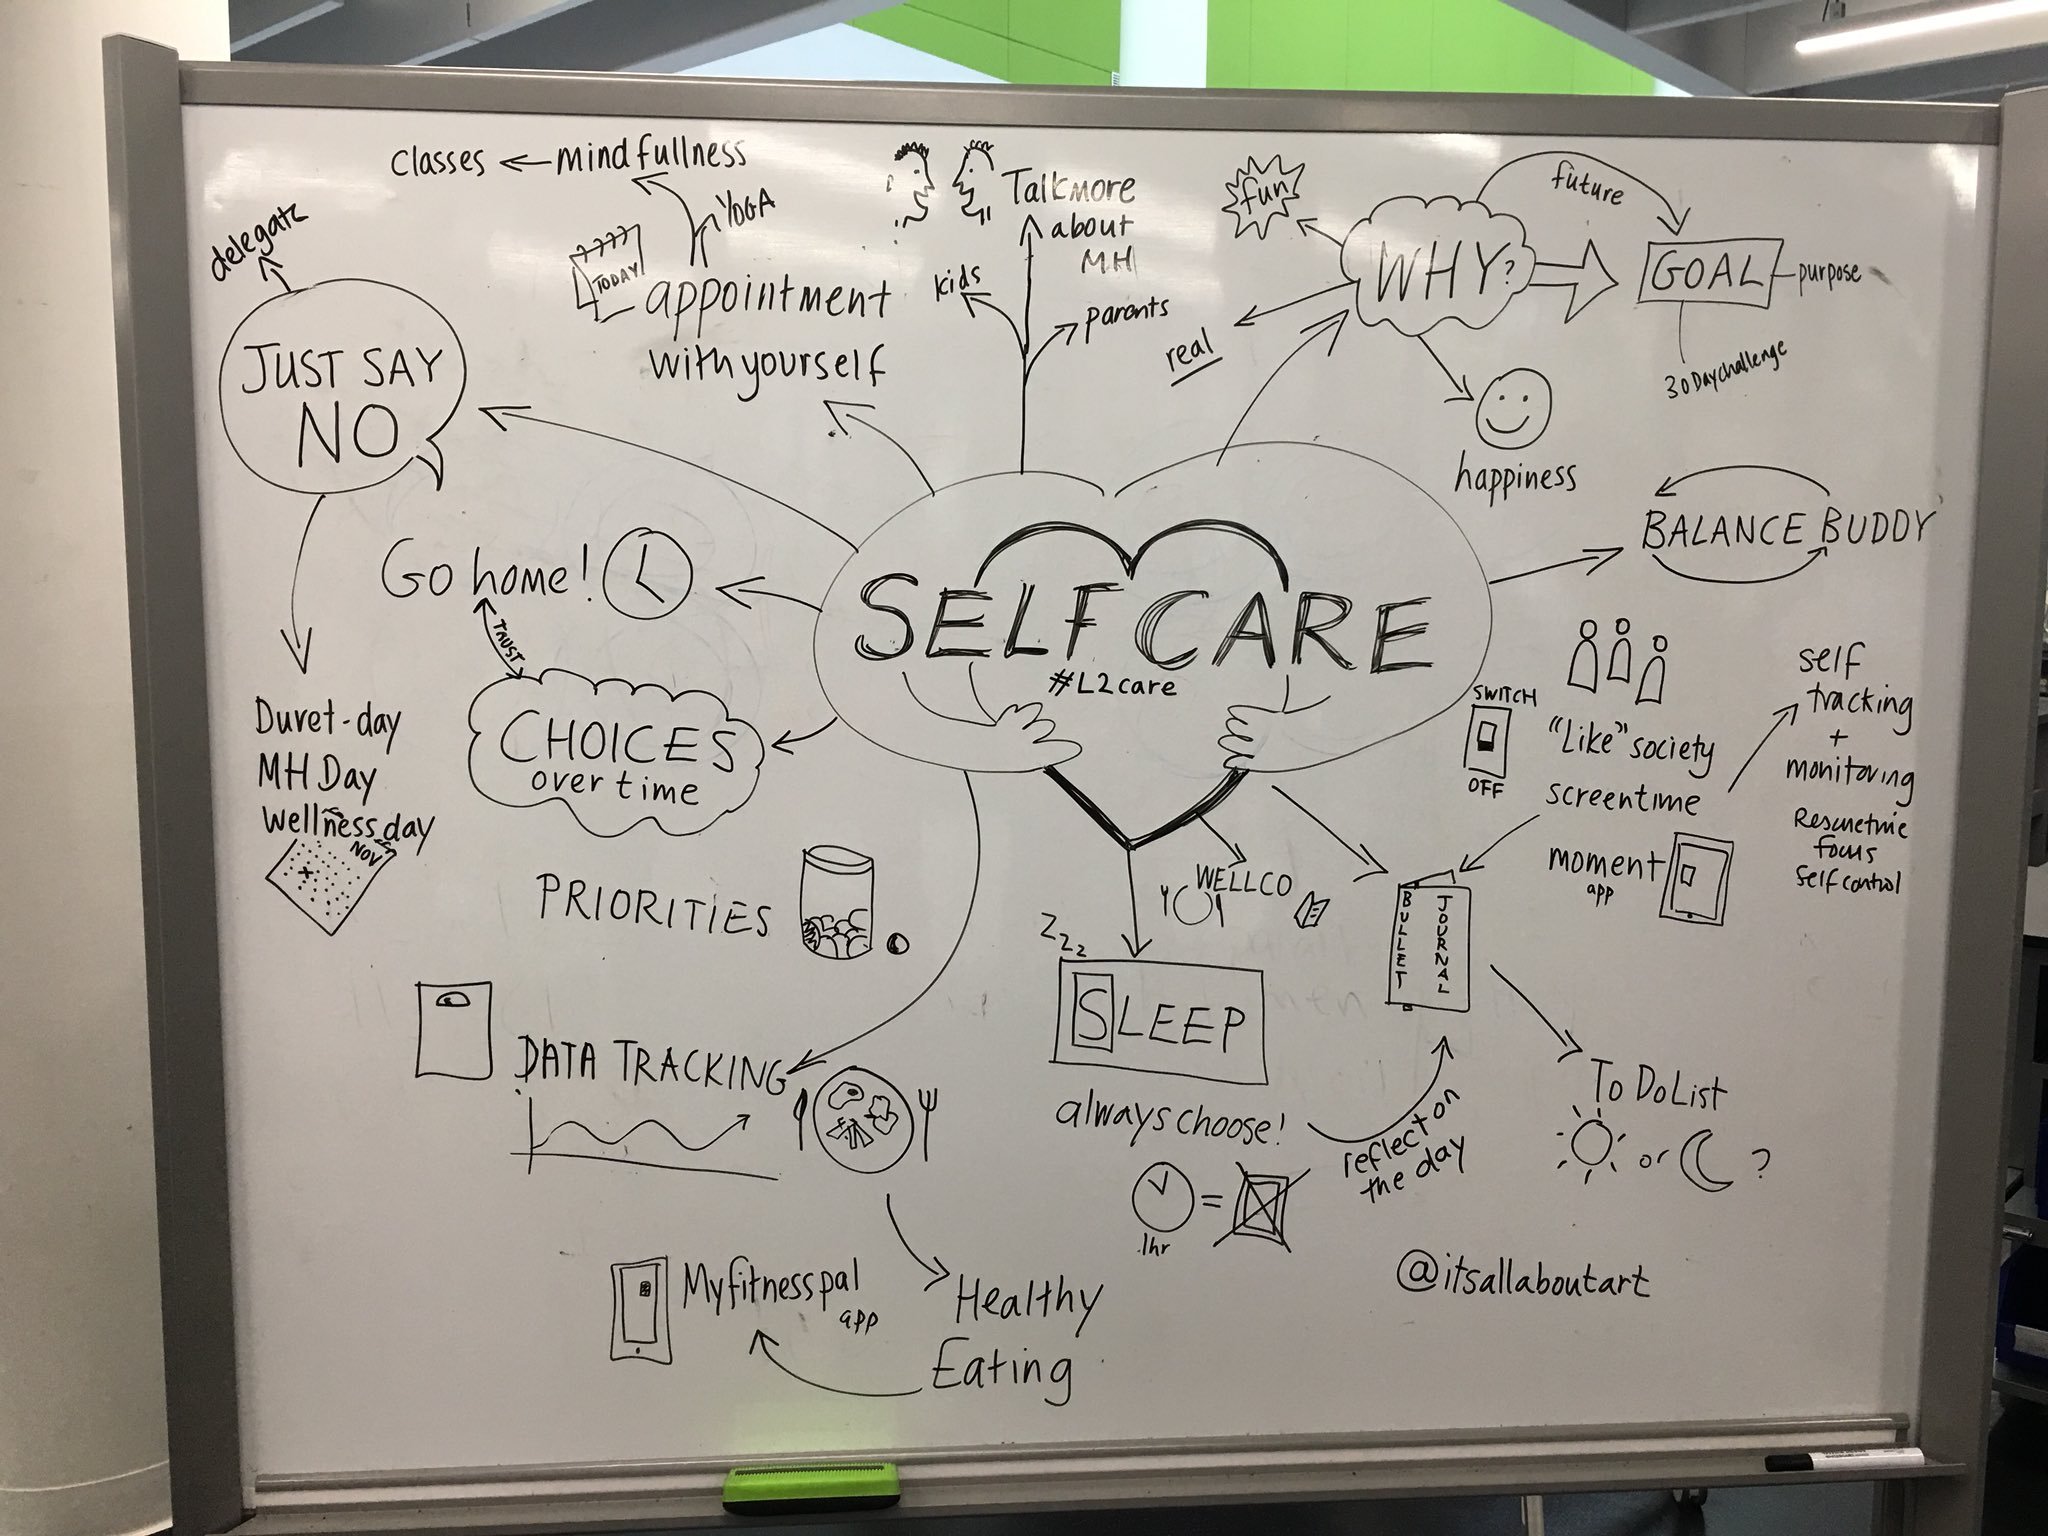 classes
mindfullness
YOGA
TODAY
appointment
with yourself
delegate
JUST SAY
NO
Talk more
about
MH
kids
parents
fun
WHY?
future
GOAL
purpose
30 Day challenge
real
happiness
BALANCE BUDDY
Go home!
TRUST
CHOICES
over time
SELF CARE
#L2care
Duvet-day
MH Day
Wellness day
NOV
PRIORITIES
SWITCH
OFF
"Like" society
screentime
self
tracking
+
monitoring
Rescuetime
focus
Self control
moment
app
WELLCO
BULLET
JOURNAL
zzz
SLEEP
always choose!
1hr
=
reflect on
the day
To Do List
or
?
DATA TRACKING
Myfitnesspal
app
Healthy
Eating
@itsallaboutart